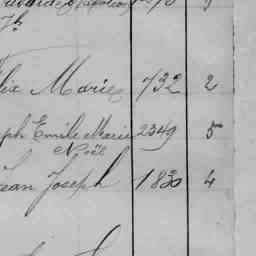 lix Marie 732 2
ph Emile Marie 2349 5
Noël
Jean Joseph 1830 4